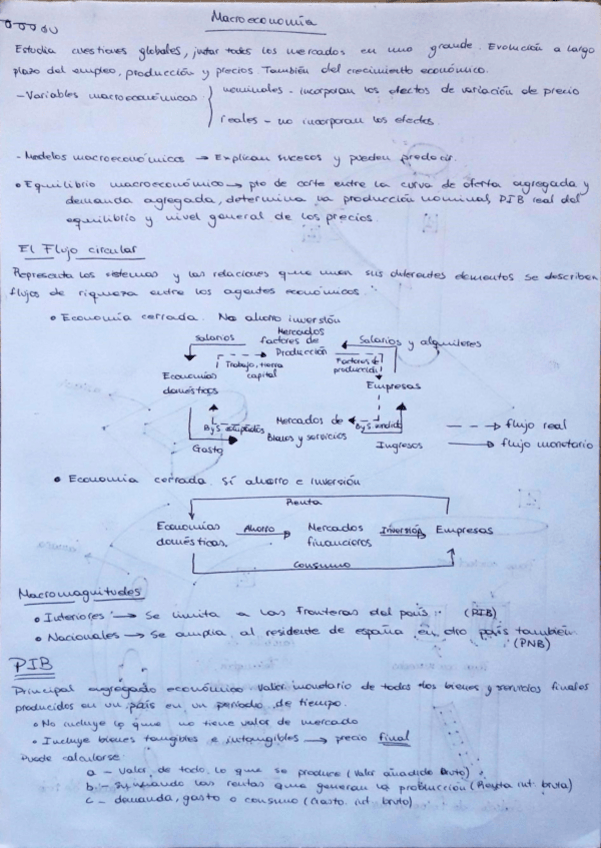 Macroeconomía
Estudia cuestiones globales, juntar todos los mercados en uno grande. Evolución a largo
plazo del empleo, producción y precios. También del crecimiento económico.
- Variables macroeconómicas nominales - incorporan los efectos de variación de precio
reales - no incorporan los efectos.
- Modelos macroeconómicos → Explican sucesos y pueden predecir.
• Equilibrio macroeconómico → pto de corte entre la curva de oferta agregada y
demanda agregada, determina la producción nominal, PIB real del
equilibrio y nivel general de los precios.
El Flujo circular
Representa los sistemas y las relaciones que unen sus diferentes elementos se describen
flujos de riqueza entre los agentes económicos.
• Economía cerrada. No ahorro inversión
Salarios Mercados factores de Producción Salarios y alquileres
Trabajo, tierra capital Factores de producción
Economías domésticas Empresas
ByS adquiridos Mercados de Bienes y servicios ByS vendido
Gasto Ingresos
- - -> flujo real
—> flujo monetario
• Economía cerrada. Sí ahorro e inversión
Renta
Economías domésticas Ahorro Mercados financieros Inversión Empresas
Consumo
Macromagnitudes
• Interiores → Se limita a las fronteras del país. (PIB)
• Nacionales → Se amplía al residente de españa en otro país también
(PNB)
PIB
Principal agregado económico. Valor monetario de todos los bienes y servicios finales
producidos en un país en un período de tiempo.
• No incluye lo que no tiene valor de mercado
• Incluye bienes tangibles e intangibles → precio final
Puede calcularse:
a - Valor de todo lo que se produce (Valor añadido Bruto)
b - Sumando las rentas que generan la producción (Renta int. bruta)
c - demanda, gasto o consumo (Gasto. int. bruto)